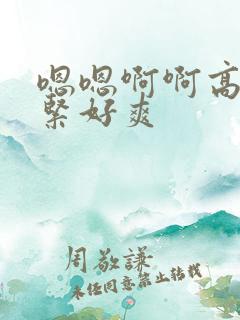 嗯嗯啊啊高
紧好爽
周敬谦
未经同意禁止转载